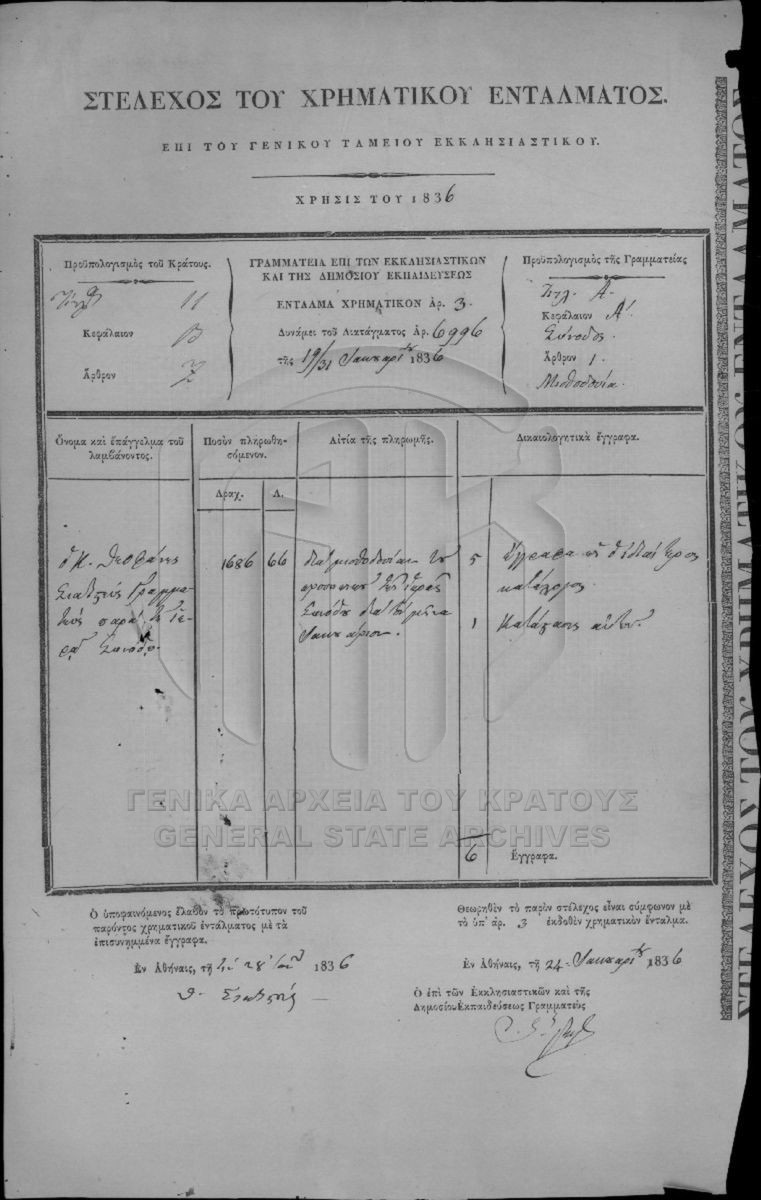 ΣΤΕΛΕΧΟΣ ΤΟΥ ΧΡΗΜΑΤΙΚΟΥ ΕΝΤΑΛΜΑΤΟΣ.
ΕΠΙ ΤΟΥ ΓΕΝΙΚΟΥ ΤΑΜΕΙΟΥ ΕΚΚΛΗΣΙΑΣΤΙΚΟΥ.
ΧΡΗΣΙΣ ΤΟΥ 1836
Προϋπολογισμὸς τοῦ Κράτους.
11
Κεφάλαιον
Ἄρθρον
ΓΡΑΜΜΑΤΕΙΑ ΕΠΙ ΤΩΝ ΕΚΚΛΗΣΙΑΣΤΙΚΩΝ
ΚΑΙ ΤΗΣ ΔΗΜΟΣΙΟΥ ΕΚΠΑΙΔΕΥΣΕΩΣ
ΕΝΤΑΛΜΑ ΧΡΗΜΑΤΙΚΟΝ ἀρ. 3.
Δυνάμει τοῦ Διατάγματος ἀρ. 6996
τῆς 19/31 Ἰανουαρίου 1836
Προϋπολογισμὸς τῆς Γραμματείας
Τίτλ. Α.
Κεφάλαιον Α'
Σύνοδος.
Ἄρθρον 1.
Μισθοδοσία.
Ὄνομα καὶ ἐπάγγελμα τοῦ
λαμβάνοντος.
Ποσὸν πληρωθη-
σόμενον.
Δραχ. Λ.
Αἰτία τῆς πληρωμῆς.
Δικαιολογητικὰ ἔγγραφα.
ὁ Κ. Θεοφάνης
Σιατιστεύς Γραμμα-
τεὺς παρὰ τῇ ἱε-
ρᾷ Συνόδῳ.
1686 66
διὰ μισθοδοσίαν τοῦ
προσωπικοῦ τῆς ἱερᾶς
Συνόδου διὰ τὸν μῆνα
Ἰανουάριον.
5 ἔγγραφα
κατάλογος.
1 Κατάστασις
6 Ἔγγραφα.
ΓΕΝΙΚΑ ΑΡΧΕΙΑ ΤΟΥ ΚΡΑΤΟΥΣ
GENERAL STATE ARCHIVES
Ὁ ὑποφαινόμενος ἔλαβον τὸ πρωτότυπον τοῦ
παρόντος χρηματικοῦ ἐντάλματος μὲ τὰ
ἐπισυνημμένα ἔγγραφα.
Ἐν Ἀθήναις, τῇ 28 1836
Θεωρηθὲν τὸ παρὸν στέλεχος εἶναι σύμφωνον μὲ
τὸ ὑπ' ἀρ. 3 ἐκδοθὲν χρηματικὸν ἔνταλμα.
Ἐν Ἀθήναις, τῇ 24 Ἰανουαρίου 1836
Ὁ ἐπὶ τῶν Ἐκκλησιαστικῶν καὶ τῆς
Δημοσίου Ἐκπαιδεύσεως Γραμματεὺς
ΣΤΕΛΕΧΟΣ ΤΟΥ ΧΡΗΜΑΤΙΚΟΥ ΕΝΤΑΛΜΑΤΟΣ